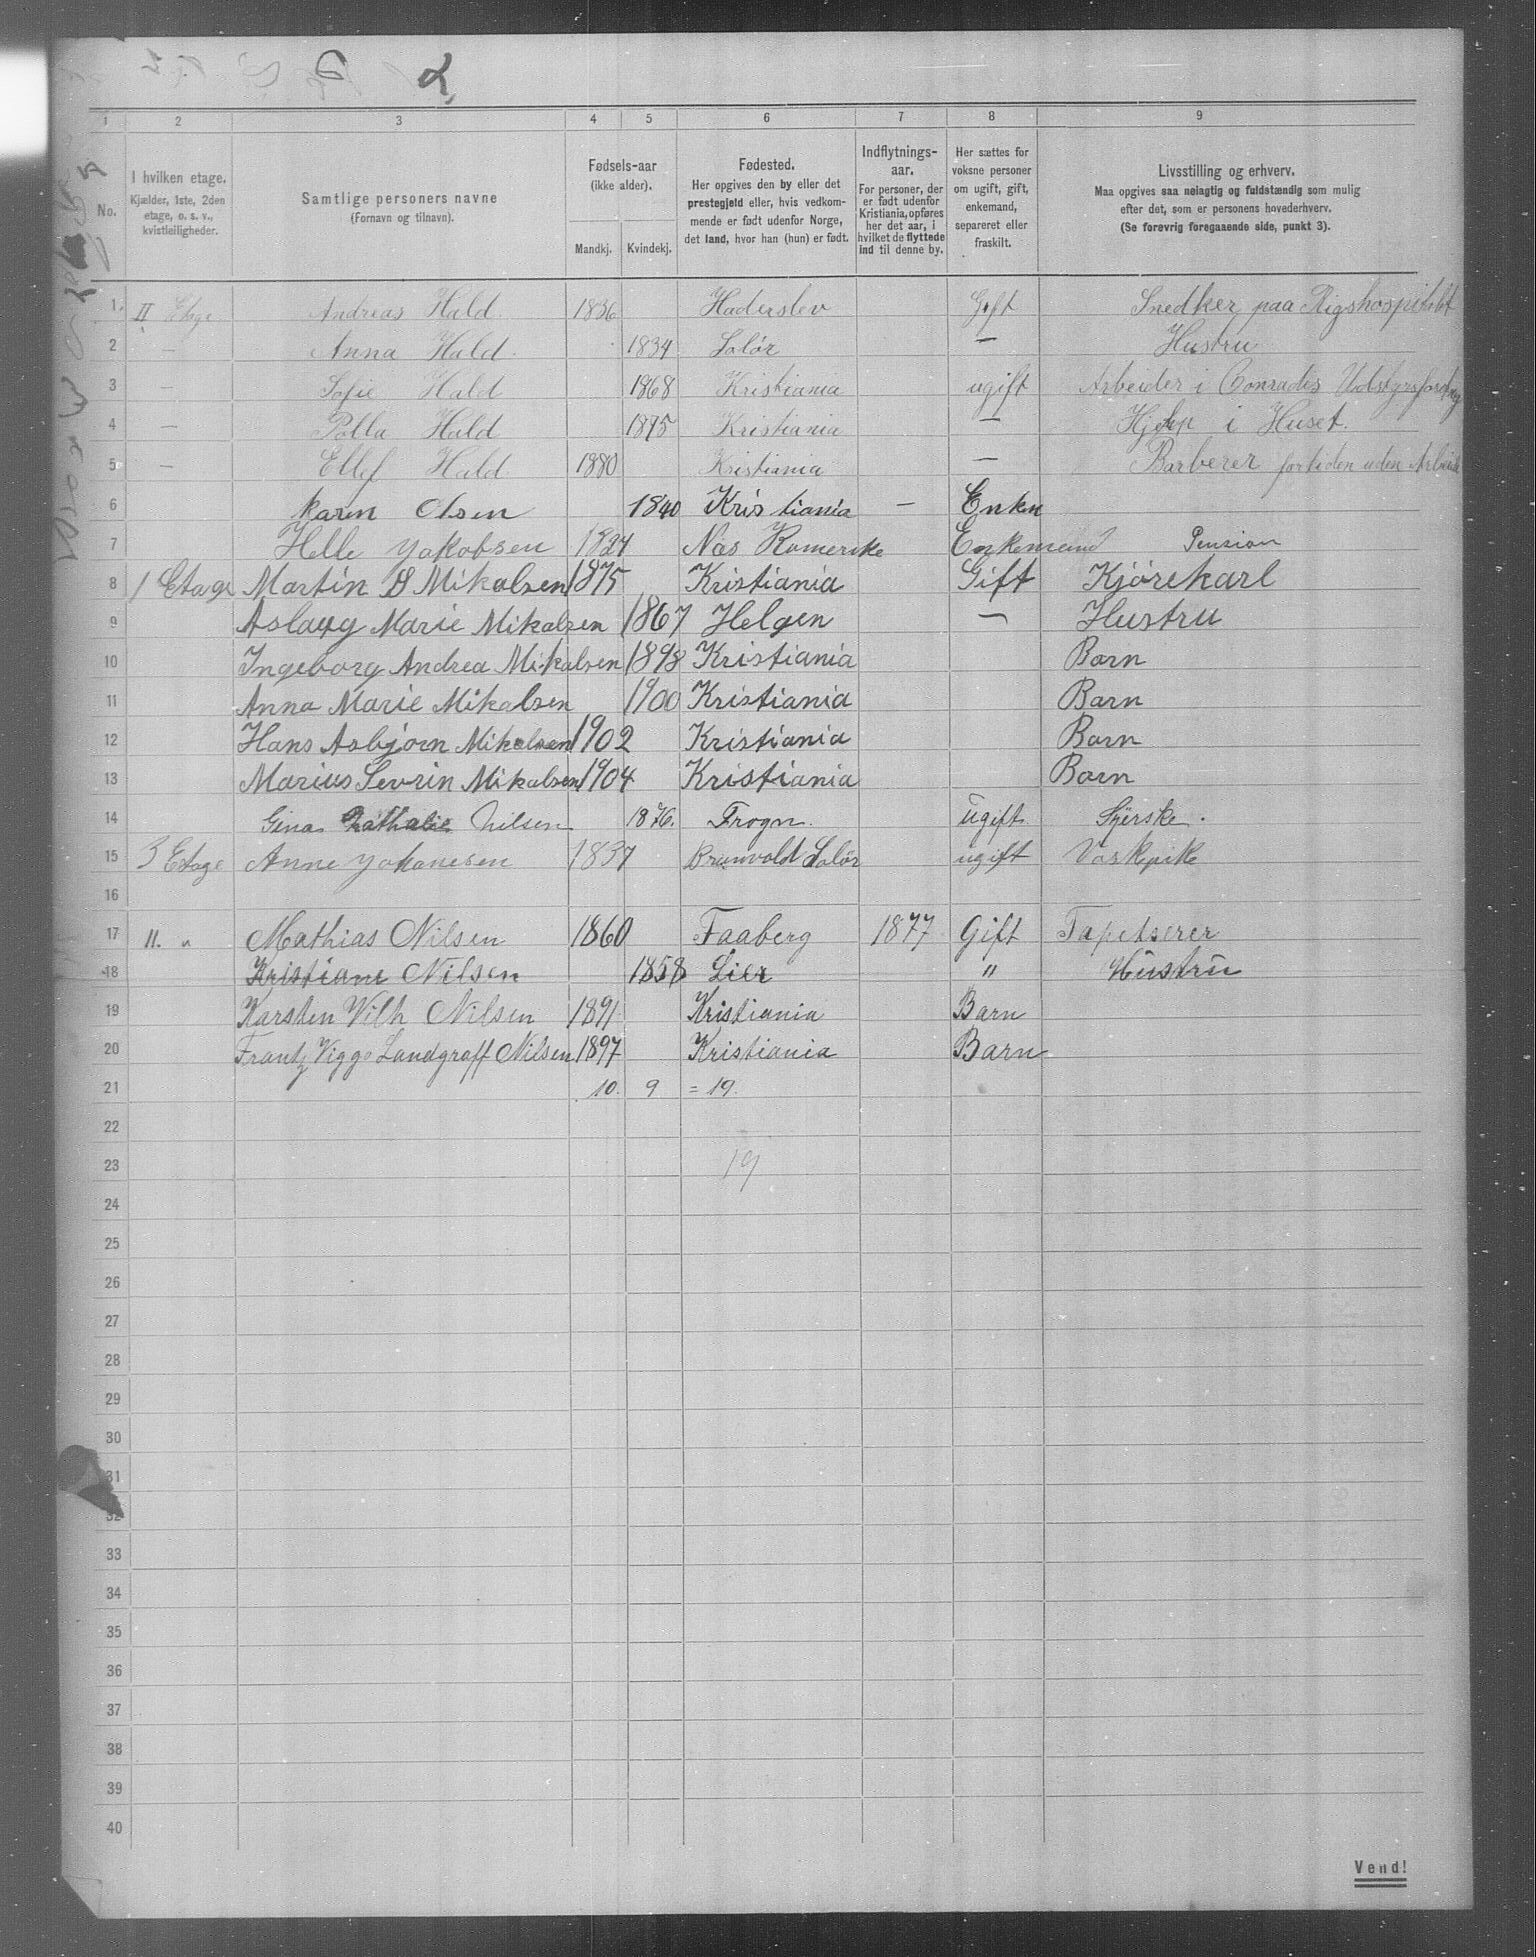 1 2 3 4 5 6 7 8 9
No.
I hvilken etage.
Kjælder, 1ste, 2den
etage, o. s. v.,
kvistleiligheder.
Samtlige personers navne
(Fornavn og tilnavn).
Fødsels-aar
(ikke alder).
Mandkj. Kvindekj.
Fødested.
Her opgives den by eller det
prestegjeld eller, hvis vedkom-
mende er født udenfor Norge,
det land, hvor han (hun) er født.
Indflytnings-
aar.
For personer, der
er født udenfor
Kristiania, opføres
her det aar, i
hvilket de flyttede
ind til denne by.
Her sættes for
voksne personer
om ugift, gift,
enkemand,
separeret eller
fraskilt.
Livsstilling og erhverv.
Maa opgives saa nøiagtig og fuldstændig som mulig
efter det, som er personens hovederhverv.
(Se forøvrig foregaaende side, punkt 3).
1. II Etage Andreas Hald 1836 Haderslev Gift Snedker paa Rigshospitalet
2 — Anna Hald 1834 Solør — Hustru
3 — Sofie Hald 1868 Kristiania ugift Arbeider i Conradis Udstyrsforetng
4 — Polla Hald 1875 Kristiania — Hjelp i Huset.
5 — Ellef Hald 1880 Kristiania — Barberer fortiden uden Arbeide
6 Karen Olsen 1840 Kristiania — Enke
7 Helle Jakobsen 1824 Nas Romerike Enkemand Pension
8 1 Etage Martin B Mikalsen 1875 Kristiania Gift Kjörekarl
9 Aslaug Marie Mikalsen 1867 Helgen — Hustru
10 Ingeborg Andrea Mikalsen 1898 Kristiania Barn
11 Anna Marie Mikalsen 1900 Kristiania Barn
12 Hans Asbjorn Mikalsen 1902 Kristiania Barn
13 Marius Sevrin Mikalsen 1904 Kristiania Barn
14 Gina Nathalie Nilsen 1876. Frogn. ugift Syerske.
15 3 Etage Anne Johanesen 1837 Brunvold Solør ugift Vaskepike
16
17 II. " Mathias Nilsen 1860 Faaberg 1877 Gift Tapetserer
18 Kristiane Nilsen 1858 Lier " Hustru
19 Karsten Vilh Nilsen 1891 Kristiania Barn
20 Frantz Viggo Landgraff Nilsen 1897 Kristiania Barn
21 10. 9 = 19.
22
23 19
24
25
26
27
28
29
30
31
32
33
34
35
36
37
38
39
40
Vend!